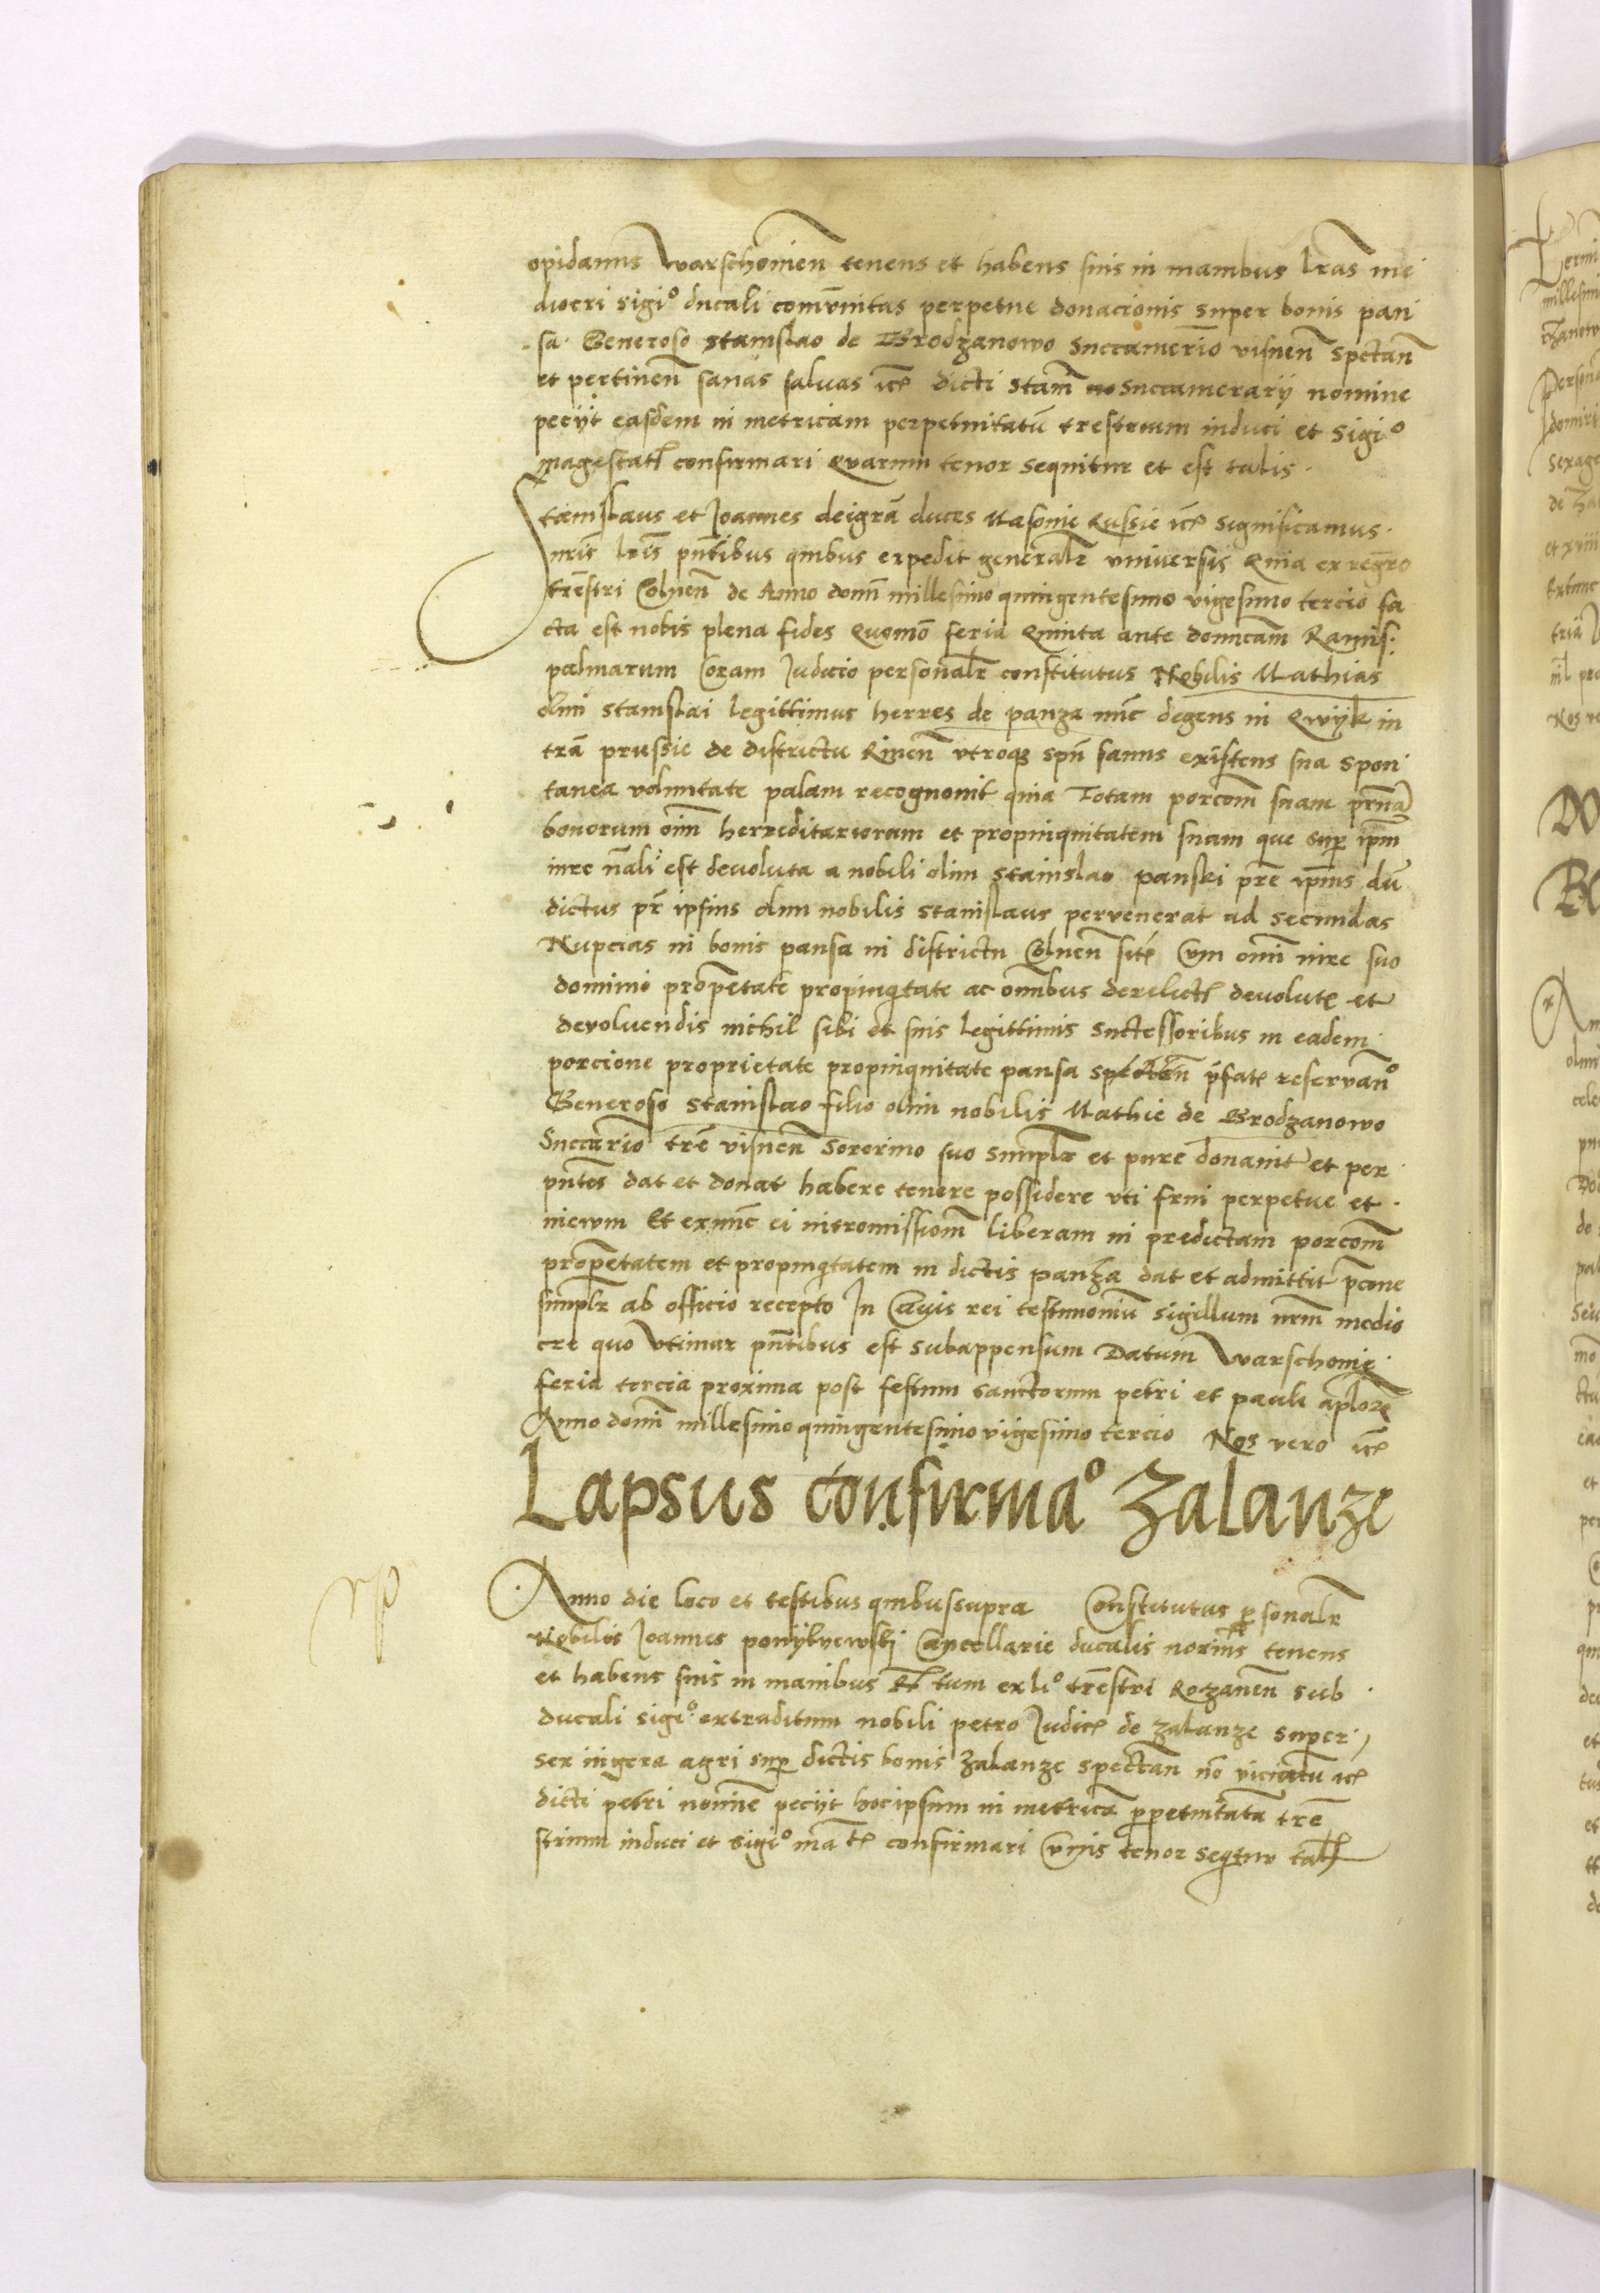 opidanus Warschouien tenens et habens suis in manibus lras me
diocri sigi° ducali comunitas perpetue donacionis super bonis pan
sa Generoso Stanislao de Brodzanowo Succamerio visnen Spectan
et pertinen sanas saluas itc dicti Stani Succamerarij nomine
pecijt easdem in metricam perpetuitatu trestrium induci et Sigi°
magestatl confirmari Quarum tenor sequitur et est talis
Stanislaus et Joannes dei gra duces Masouie Russie itc Significamus
nris lris pntibus quibus expedit generalr vniversis Quia ex regro
trestri Colnen de Anno domi millesimo quingentesimo vigesimo tercio fa
cta est nobis plena fides Quomo feria Quinta ante domicam Ramis
palmarum Coram Judicio personalr constitutus Nobilis Mathias
olim Stanislai legittimus herres de panza nuc degens in Qwijk in
tra prussie de districtu Rinen vtroqz spu sanus existens sua Spon
tanea voluntate palam recognouit quia Totam porcom suam prna
bonorum oim herreditariorum et propinquitatem suam que sup ipm
iure nali est deuoluta a nobili olim Stanislao panski pre ipius du
dictus pr ipsius olim nobilis Stanislaus pervenerat ad secundas
Nupcias in bonis pansa in districtu Colnen site Cum omi iure suo
dominio propetate propinqtate ac omibus derelictl devolutl et
devoluendis nichil sibi et suis legittimis Successoribus in eadem
porcione proprietate propinquitate pansa spectan pfatl reservan°
Generoso Stanislao filio olim nobilis Mathie de Brodzanowo
Succario tre visnen Sororino suo Simplr et pure donauit et per
pntes dat et donat habere tenere possidere vti frui perpetue et
in ewm Et exnuc ei intromissiom liberam in predictam porcom
propetatem et propinqtatem in dictis panza dat et admittit pcone
simplr ab officio recepto In Cuius rei testimoniu Sigillum nrm medio
cre quo Vtimur pntibus est Subappensum Datum Warschouie
feria tercia proxima post festum sanctorum petri et pauli aplor
Anno domi millesimo quingentesimo vigesimo tercio Nos vero itc
Lapsus confirma° Zalanze
Anno die loco et testibus quibussupra Constitutus psonalr
Nobilis Joannes Cancellarie ducalis tenens
et habens suis in manibus ex li° trestri Rozanen sub
ducali sigi° extraditum nobili petro Judice de Zalanze super
sex iugera agri sup dictis bonis Zalanze spectan no viciatu itc
dicti petri nomine pecijt hoc ipsum in metrica ppetuitatu tre
strium induci et sigi° ma tl confirmari Cuius tenor seqtur tal